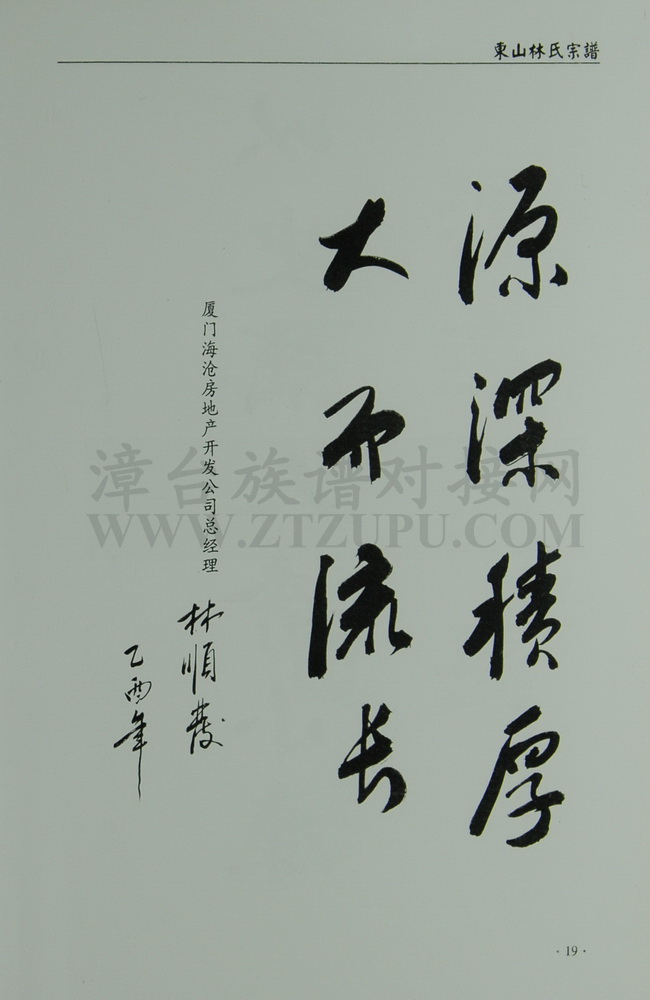 東山林氏宗譜
源深積厚
大而流长
厦门海沧房地产开发公司总经理
林順發
乙酉年
漳台族谱对接网
WWW.ZTZUPU.COM
·19·